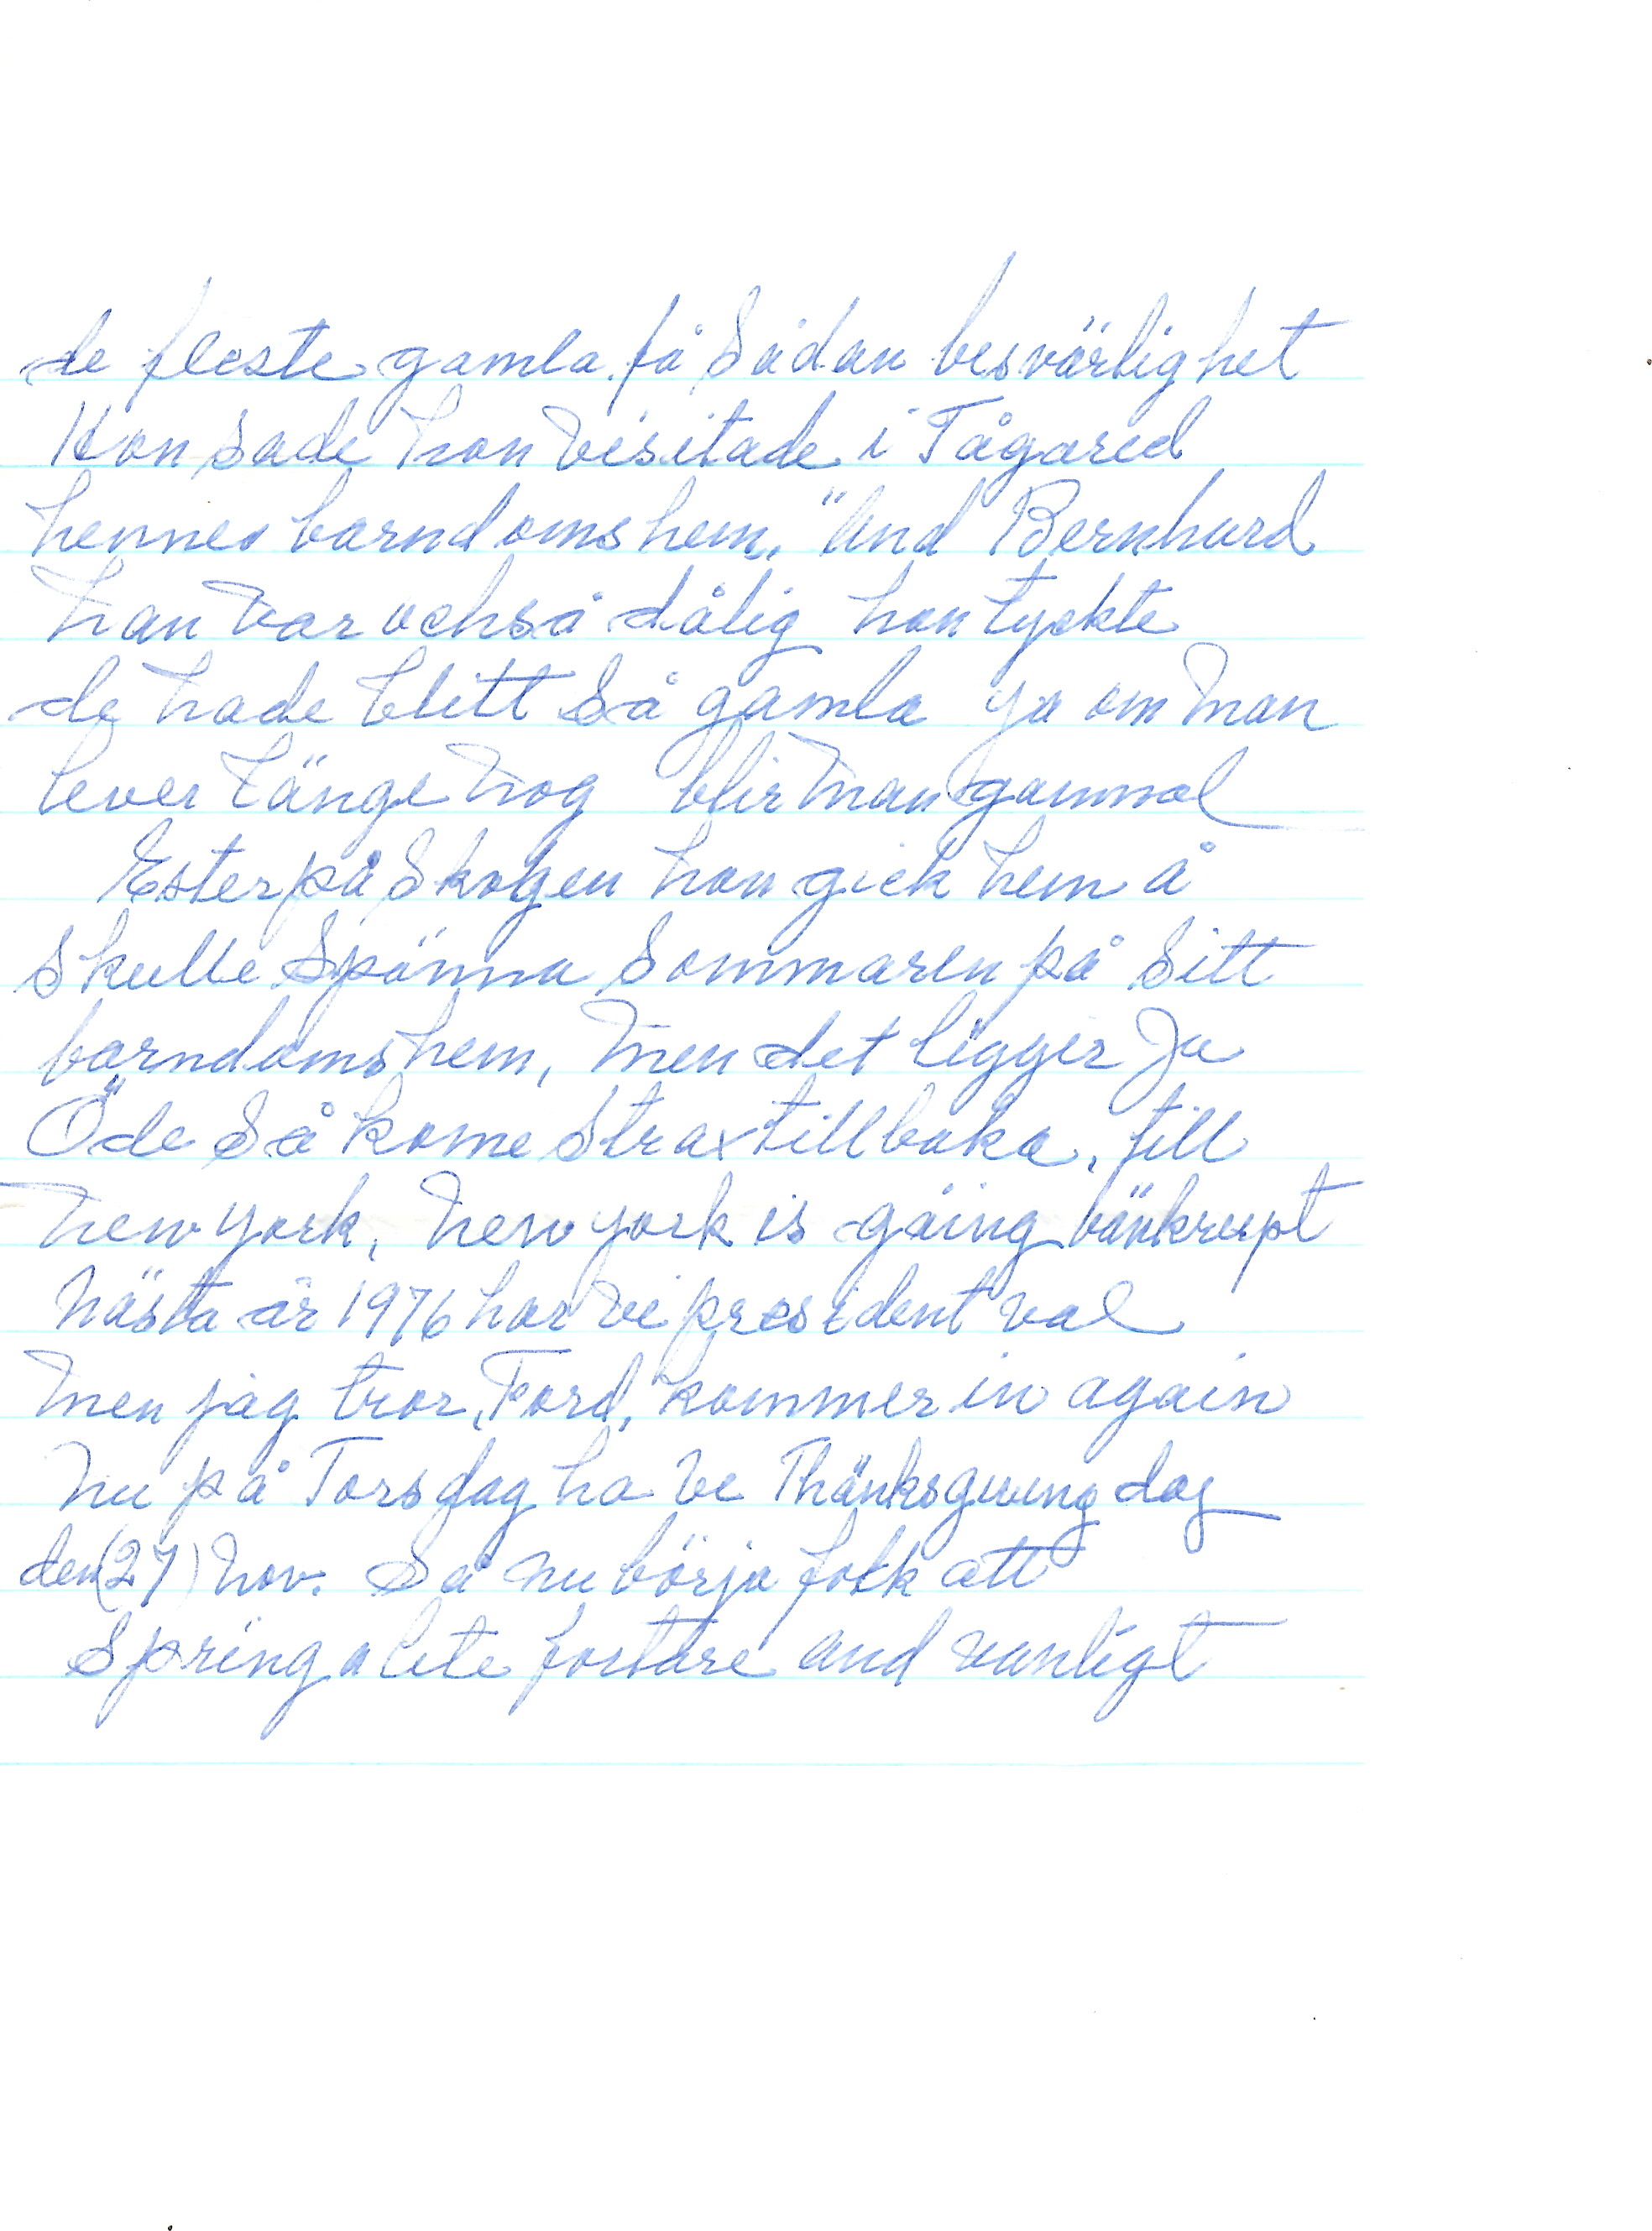 de fleste gamla få Sådan besvärlighet
Hon sade hon visitade i Tågared
hennes barndomshem, "and Bernhard
han var också dålig hon tyckte
de hade blitt så gamla ja om man
lever länge nog blir man gammal
Ester på Skogen hon gick hem å
skulle spänna Sommaren på Sitt
barndomshem, men det ligger Ja
Öde Så kome strax tillbaka, till
new york, new york is gåing bänkrupt
Nästa år 1976 har vi president val
men jag tror, Ford, kommer in again
nu på Torsdag ha vi Thänksgiving dag
den (27) Nov. Så nu börja folk att
springa lite fortare and vanligt